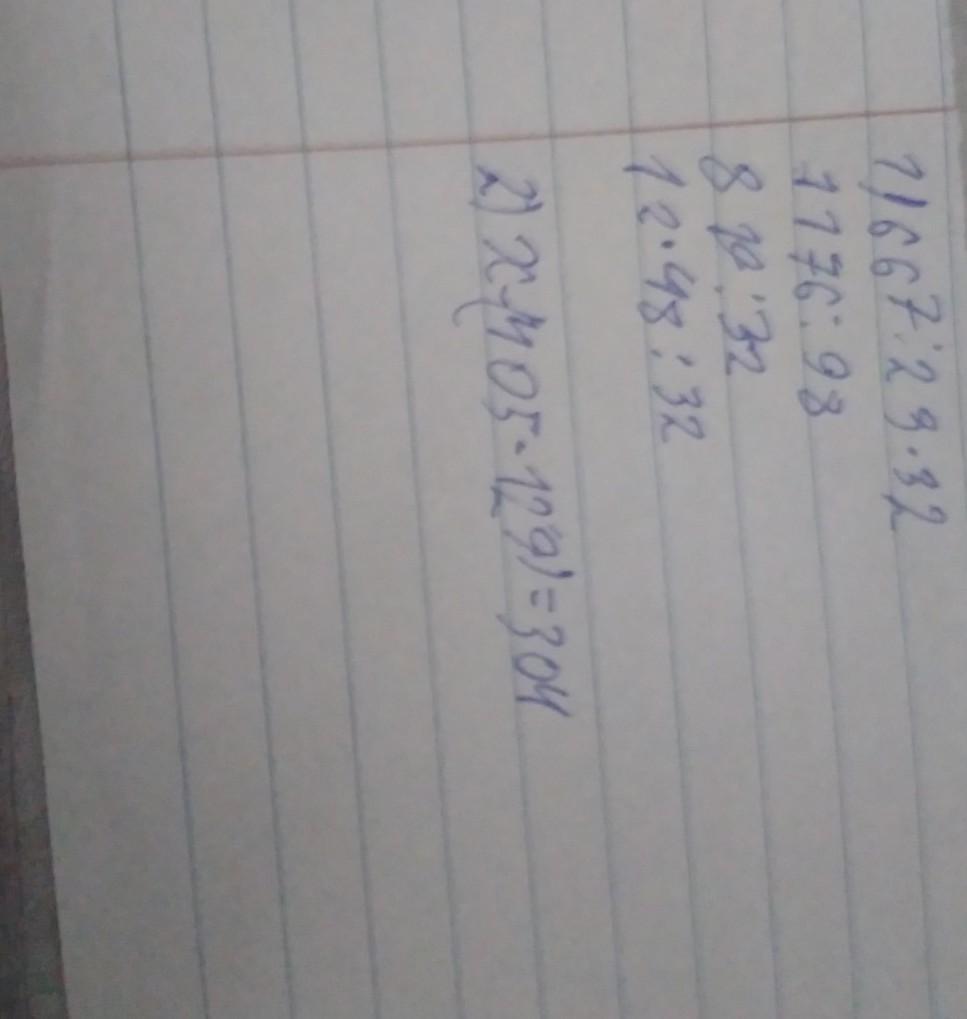 1) 667:29·32
1176:98
8 :32
12·48:32
2) x-(405-129)=304